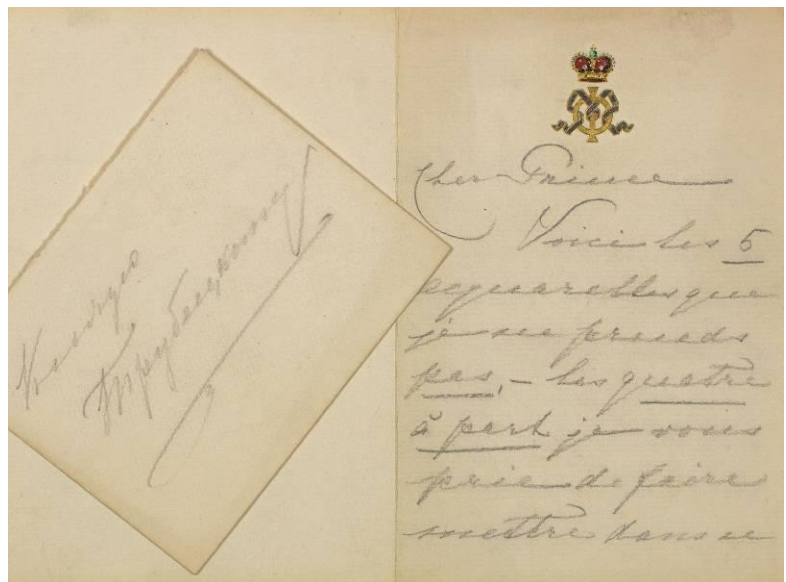 Князю
Трубецкому
Cher Prince
Voici les 5
acquarelles que
je ne prends
pas, – les quatre
à part je vous
prie de faire
mettre dans un